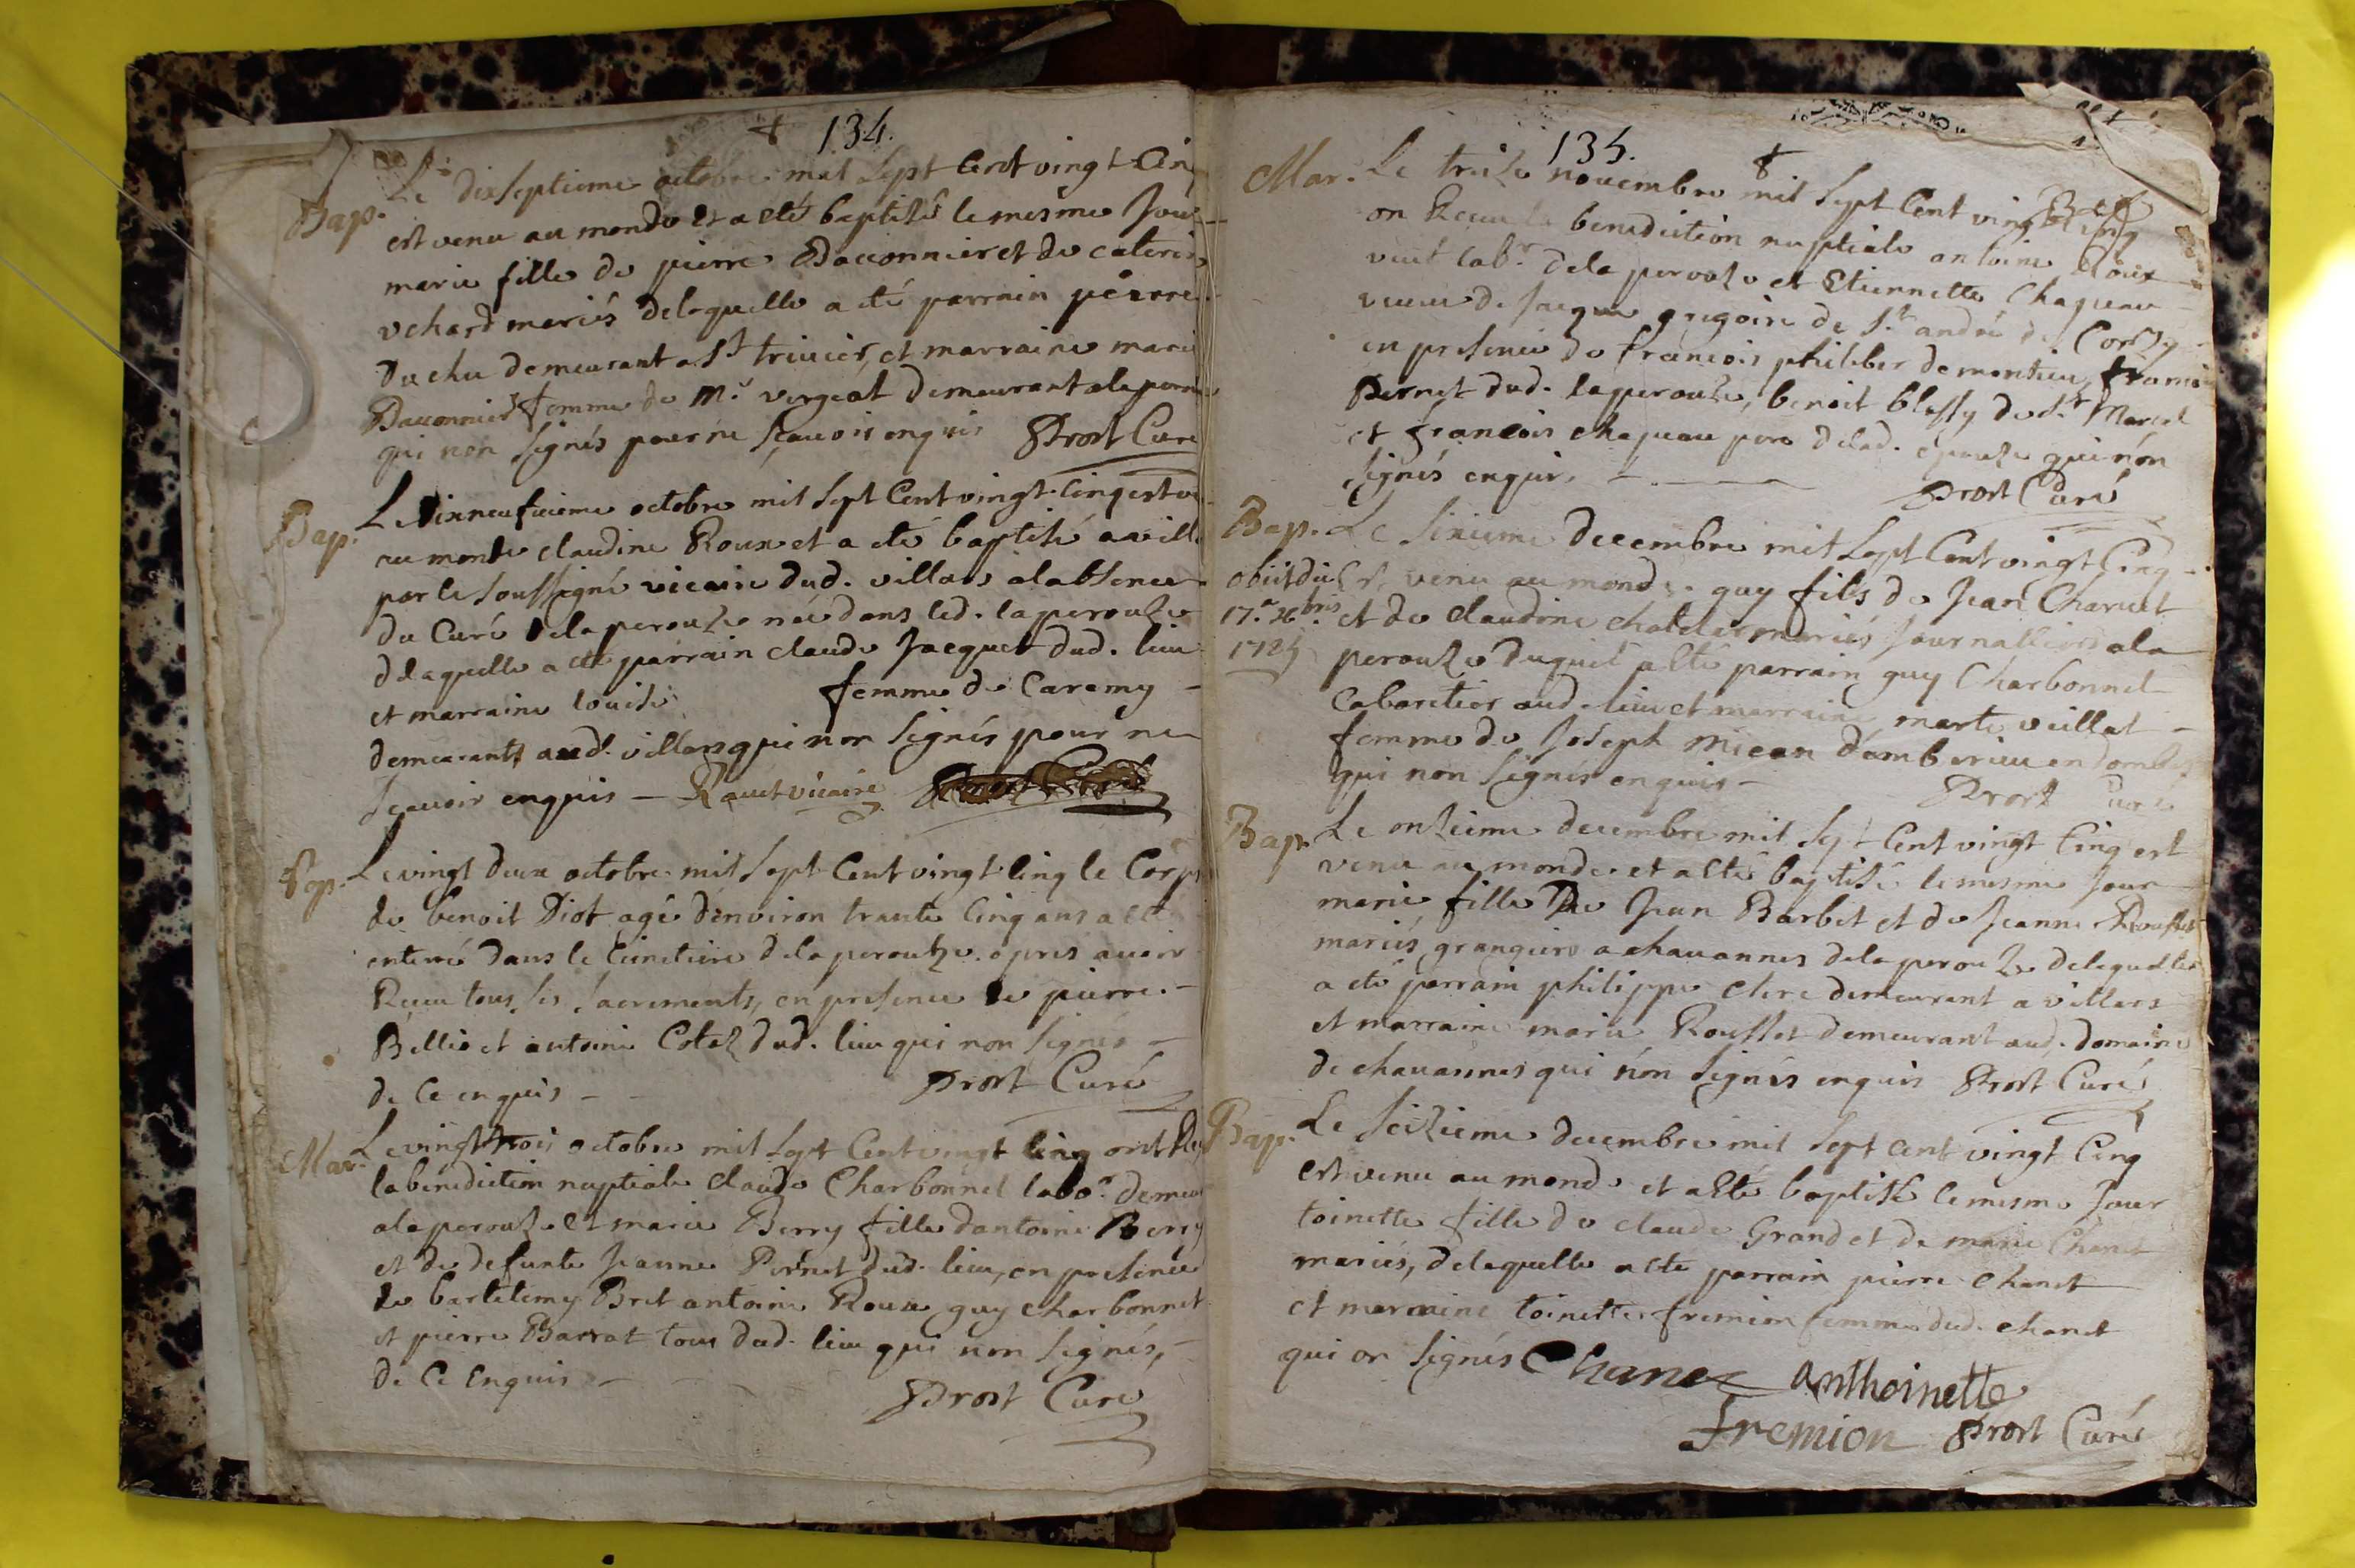 134.
Bap. Le dixseptieme octobre mil sept Cent vingt Cinq
est venu au monde et a eté baptisé le mesme Jour
marie fille de pierre Dauonnier et de caterine
vchard mariés delaquelle a eté parrain pierre
Duchu demeurant a St. triuier, et marraine marie
Dauonnier femme de Mr. vergeat demeurant alaperou
qui non signés pour ne sçauoir enquis Prost Curé
Bap. Le dixneufuieme octobre mil sept Cent vingt Cinq est ve
au monde claudine Roux et a eté baptisé a villa
par le soussigné vicaire dud. villars alabsence
du Curé delaperouze née dans led. laperouze
delaquelle a eté parrain claude Jacquet dud. lieu
et marraine louise femme de Caremy
demeurants aud. villars qui non signés pour ne
sçauoir enquis - Rauet vicaire
Sep. Le vingt deux octobre mil sept Cent vingt cinq le Corps
de benoit Diot agé d'enuiron trante Cinq ans a eté
enterré dans le Cimetiere delaperouze apres auoir
Receu tous ses sacrements, en presence de pierre
Bellis et antoine Cotaz dud. lieu qui non signés
de Ce enquis - Prost Curé
Mar. Le vingt trois octobre mil sept Cent vingt Cinq ont Re
la benediction nuptiale claude Charbonnel labor. demeu
alaperouze et marie Berry fille dantoine Berry
et de defunte Jeanne Pernet dud. lieu, en presence
de bartelemy Bret antoine Roux guy charbonnet
et pierre Barrat tous dud. lieu qui non signés,
de Ce Enquis - Prost Curé
135.
Mar. Le treize nouembre mil sept Cent vingt Cinq
on Receu la benediction nuptiale antoine
veuf labr. dela perouze et Etiennette Chapeau
veuue de Jacque gregoire de St. andré de Corcy
en presence de francois philiber de montieu, francois
Pernet dud. laperouze, benoit blessy de St. Marcel
et francois chapeau pere delad. épouze qui nón
signés enquis. - Prost Curé
Bap. Le sixieme decembre mil sept Cent vingt Cinq
obiit die est venu au monde guy fils de Jean Charuet
17.a xbris. et de claudine chatelet mariés Journalliers ala
1725 perouze duquel a eté parrain guy Charbonnel
Cabaretier aud. lieu et marraine marte veillat
femme de Joseph Micon d'amberieu en dombes
qui non signés enquis - Prost Curé
Bap. Le onzieme decembre mil sept Cent vingt Cinq est
venu au monde et a eté baptisé le mesme Jour
marie fille De Jean Barbet et de Jeanne Rousset
mariés grangers a chauannes dela perouze delaquelle
a eté parrain philippe clere demeurant a villars
et marraine marie Rousset demeurant aud. domaine
de chauannes qui nón signés enquis Prost Curé
Bap. Le seizieme decembre mil sept Cent vingt Cinq
est venu au monde et a eté baptisé le mesme Jour
toinette fille de claude Grand et de marie Chanet
mariés, delaquelle a eté parrain pierre chanet
et marraine toinette fremion femme dud. chanet
qui on signés Chanez anthoinette
fremion Prost Curé